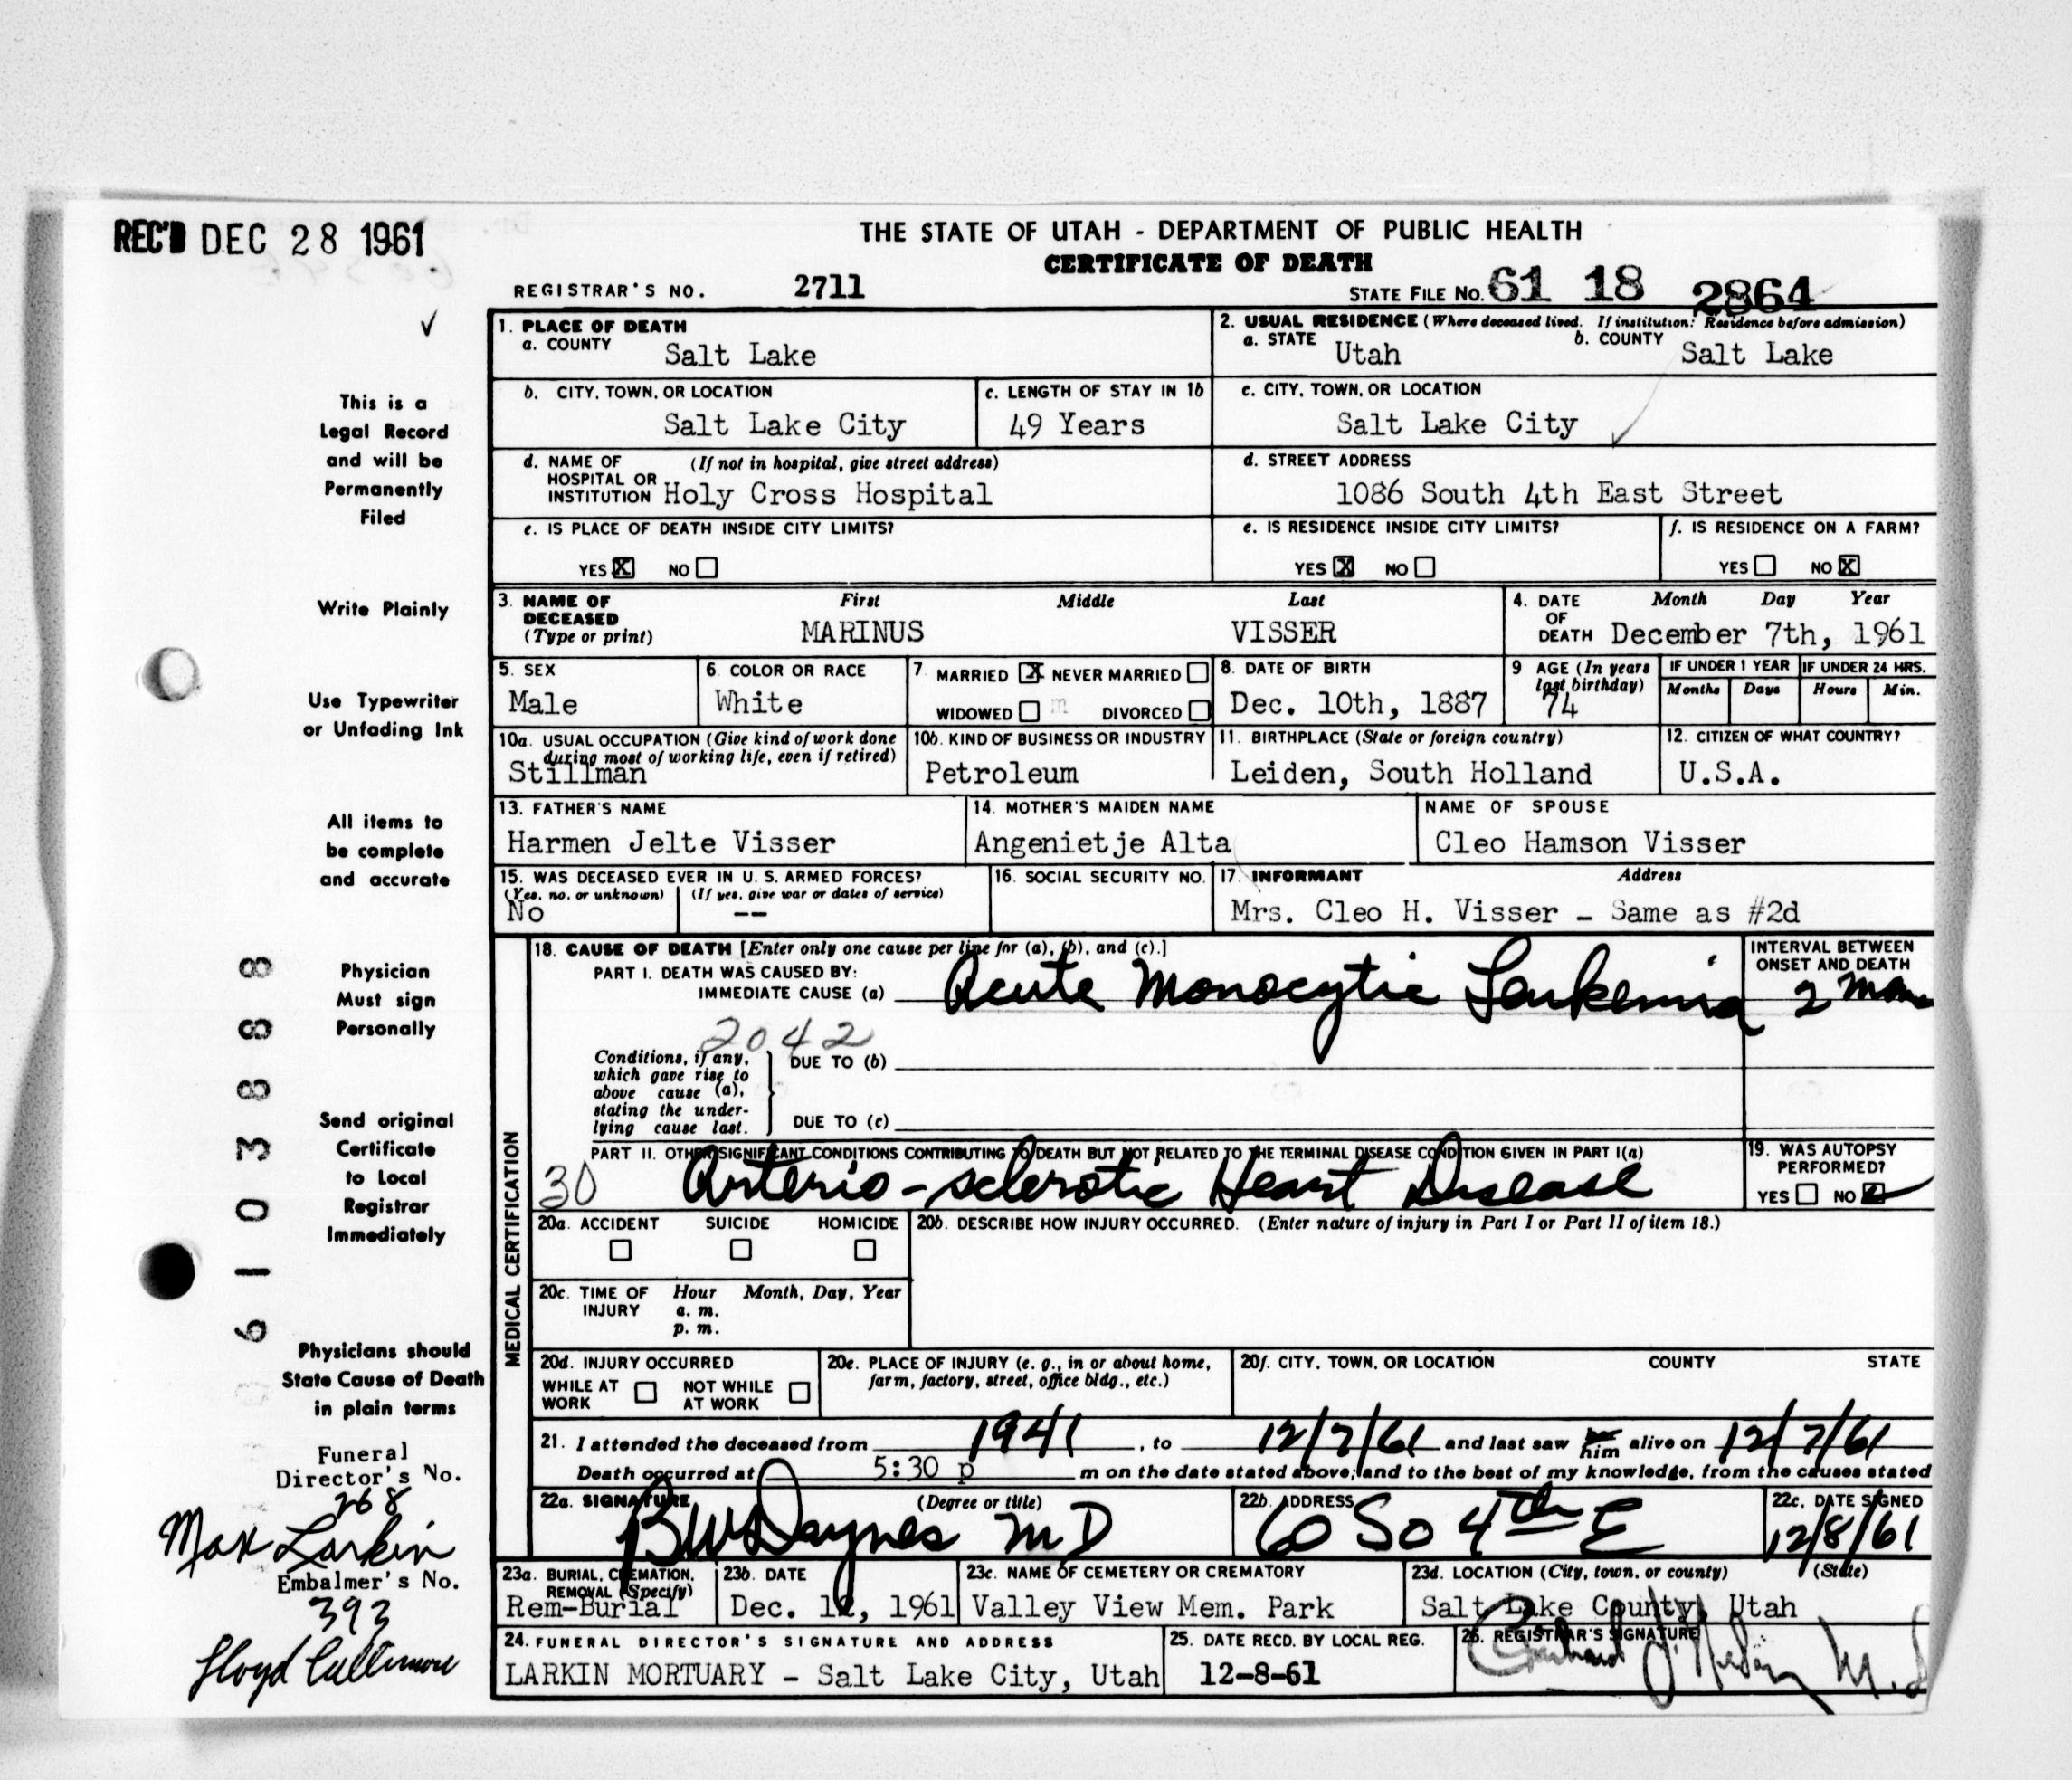 REC'D DEC 28 1961
THE STATE OF UTAH - DEPARTMENT OF PUBLIC HEALTH
CERTIFICATE OF DEATH
REGISTRAR'S NO. 2711
STATE FILE NO. 61 18 2864
This is a
Legal Record
and will be
Permanently
Filed
Write Plainly
Use Typewriter
or Unfading Ink
All items to
be complete
and accurate
Physician
Must sign
Personally
Send original
Certificate
to Local
Registrar
Immediately
Physicians should
State Cause of Death
in plain terms
Funeral
Director's No.
268
Max Larkin
Embalmer's No.
393
Lloyd Cullimore
61038888
1. PLACE OF DEATH
a. COUNTY Salt Lake
2. USUAL RESIDENCE (Where deceased lived. If institution: Residence before admission)
a. STATE Utah b. COUNTY Salt Lake
b. CITY, TOWN, OR LOCATION Salt Lake City
c. LENGTH OF STAY IN 1b 49 Years
c. CITY, TOWN, OR LOCATION Salt Lake City
d. NAME OF HOSPITAL OR INSTITUTION (If not in hospital, give street address) Holy Cross Hospital
d. STREET ADDRESS 1086 South 4th East Street
e. IS PLACE OF DEATH INSIDE CITY LIMITS?
YES X NO
e. IS RESIDENCE INSIDE CITY LIMITS?
YES X NO
f. IS RESIDENCE ON A FARM?
YES NO X
3. NAME OF DECEASED (Type or print) First Middle Last
MARINUS VISSER
4. DATE OF DEATH Month Day Year
December 7th, 1961
5. SEX Male
6. COLOR OR RACE White
7. MARRIED X NEVER MARRIED
WIDOWED DIVORCED
8. DATE OF BIRTH Dec. 10th, 1887
9 AGE (In years last birthday) 74
IF UNDER 1 YEAR Months Days
IF UNDER 24 HRS. Hours Min.
10a. USUAL OCCUPATION (Give kind of work done during most of working life, even if retired)
Stillman
10b. KIND OF BUSINESS OR INDUSTRY Petroleum
11. BIRTHPLACE (State or foreign country) Leiden, South Holland
12. CITIZEN OF WHAT COUNTRY? U.S.A.
13. FATHER'S NAME Harmen Jelte Visser
14. MOTHER'S MAIDEN NAME Angenietje Alta
NAME OF SPOUSE Cleo Hamson Visser
15. WAS DECEASED EVER IN U. S. ARMED FORCES?
(Yes, no, or unknown) (If yes, give war or dates of service)
No --
16. SOCIAL SECURITY NO.
17. INFORMANT Address
Mrs. Cleo H. Visser - Same as #2d
MEDICAL CERTIFICATION
18. CAUSE OF DEATH [Enter only one cause per line for (a), (b), and (c).]
INTERVAL BETWEEN ONSET AND DEATH
PART I. DEATH WAS CAUSED BY:
IMMEDIATE CAUSE (a) Acute Monocytic Leukemia 2 mon
2042
Conditions, if any, which gave rise to above cause (a), stating the underlying cause last.
DUE TO (b)
DUE TO (c)
PART II. OTHER SIGNIFICANT CONDITIONS CONTRIBUTING TO DEATH BUT NOT RELATED TO THE TERMINAL DISEASE CONDITION GIVEN IN PART I(a)
30 Arterio-sclerotic Heart Disease
19. WAS AUTOPSY PERFORMED?
YES NO
20a. ACCIDENT SUICIDE HOMICIDE
20b. DESCRIBE HOW INJURY OCCURRED. (Enter nature of injury in Part I or Part II of item 18.)
20c. TIME OF INJURY Hour Month, Day, Year
a. m.
p. m.
20d. INJURY OCCURRED
WHILE AT WORK NOT WHILE AT WORK
20e. PLACE OF INJURY (e. g., in or about home, farm, factory, street, office bldg., etc.)
20f. CITY, TOWN, OR LOCATION COUNTY STATE
21. I attended the deceased from 1941, to 12/7/61 and last saw her him alive on 12/7/61
Death occurred at 5:30 p m on the date stated above; and to the best of my knowledge, from the causes stated
22a. SIGNATURE (Degree or title)
BW Daynes MD
22b. ADDRESS 60 So 4th E
22c. DATE SIGNED 12/8/61
23a. BURIAL, CREMATION, REMOVAL (Specify) Rem-Burial
23b. DATE Dec. 12, 1961
23c. NAME OF CEMETERY OR CREMATORY Valley View Mem. Park
23d. LOCATION (City, town, or county) (State)
Salt Lake County, Utah
24. FUNERAL DIRECTOR'S SIGNATURE AND ADDRESS
LARKIN MORTUARY - Salt Lake City, Utah
25. DATE RECD. BY LOCAL REG. 12-8-61
26. REGISTRAR'S SIGNATURE